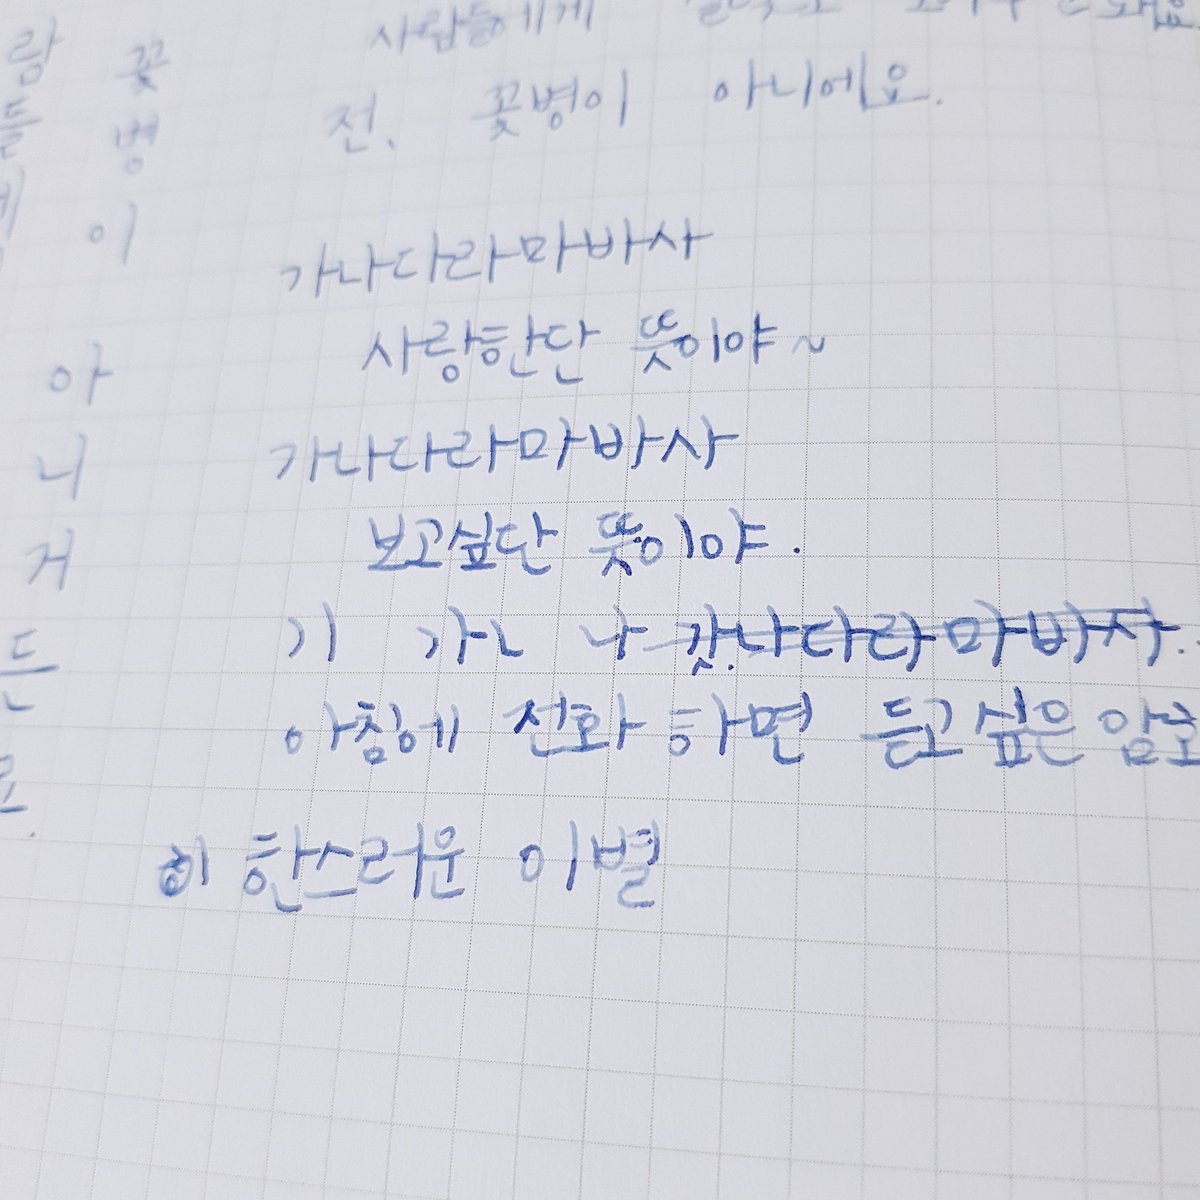 사람들에게
전. 꽃병이 아니에요.
가나다라마바사
사랑한단 뜻이야~
가나다라마바사
보고싶단 뜻이야.
기 가ㄴ 나 갓나다라마바사..
아침에 전화 하면 듣고싶은 암호
히 한스러운 이별
람
들
꽃
병
이
아
니
거
든
요.